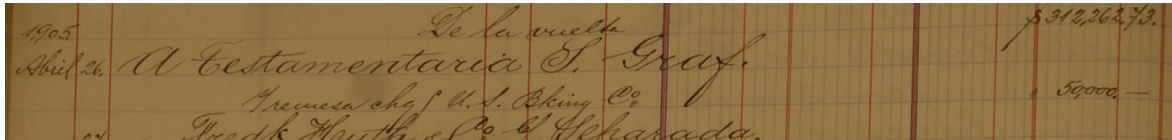 1905 De la vuelta $312,262.73.
Abril 26. A Testamentaria S. Graf.
remesa chq U.S. Bking Co. " 50,000.—
27 Fredk Huth & Co